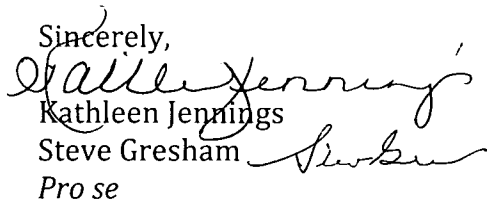 Sincerely,
Kathleen Jennings
Kathleen Jennings
Steve Gresham
Pro se